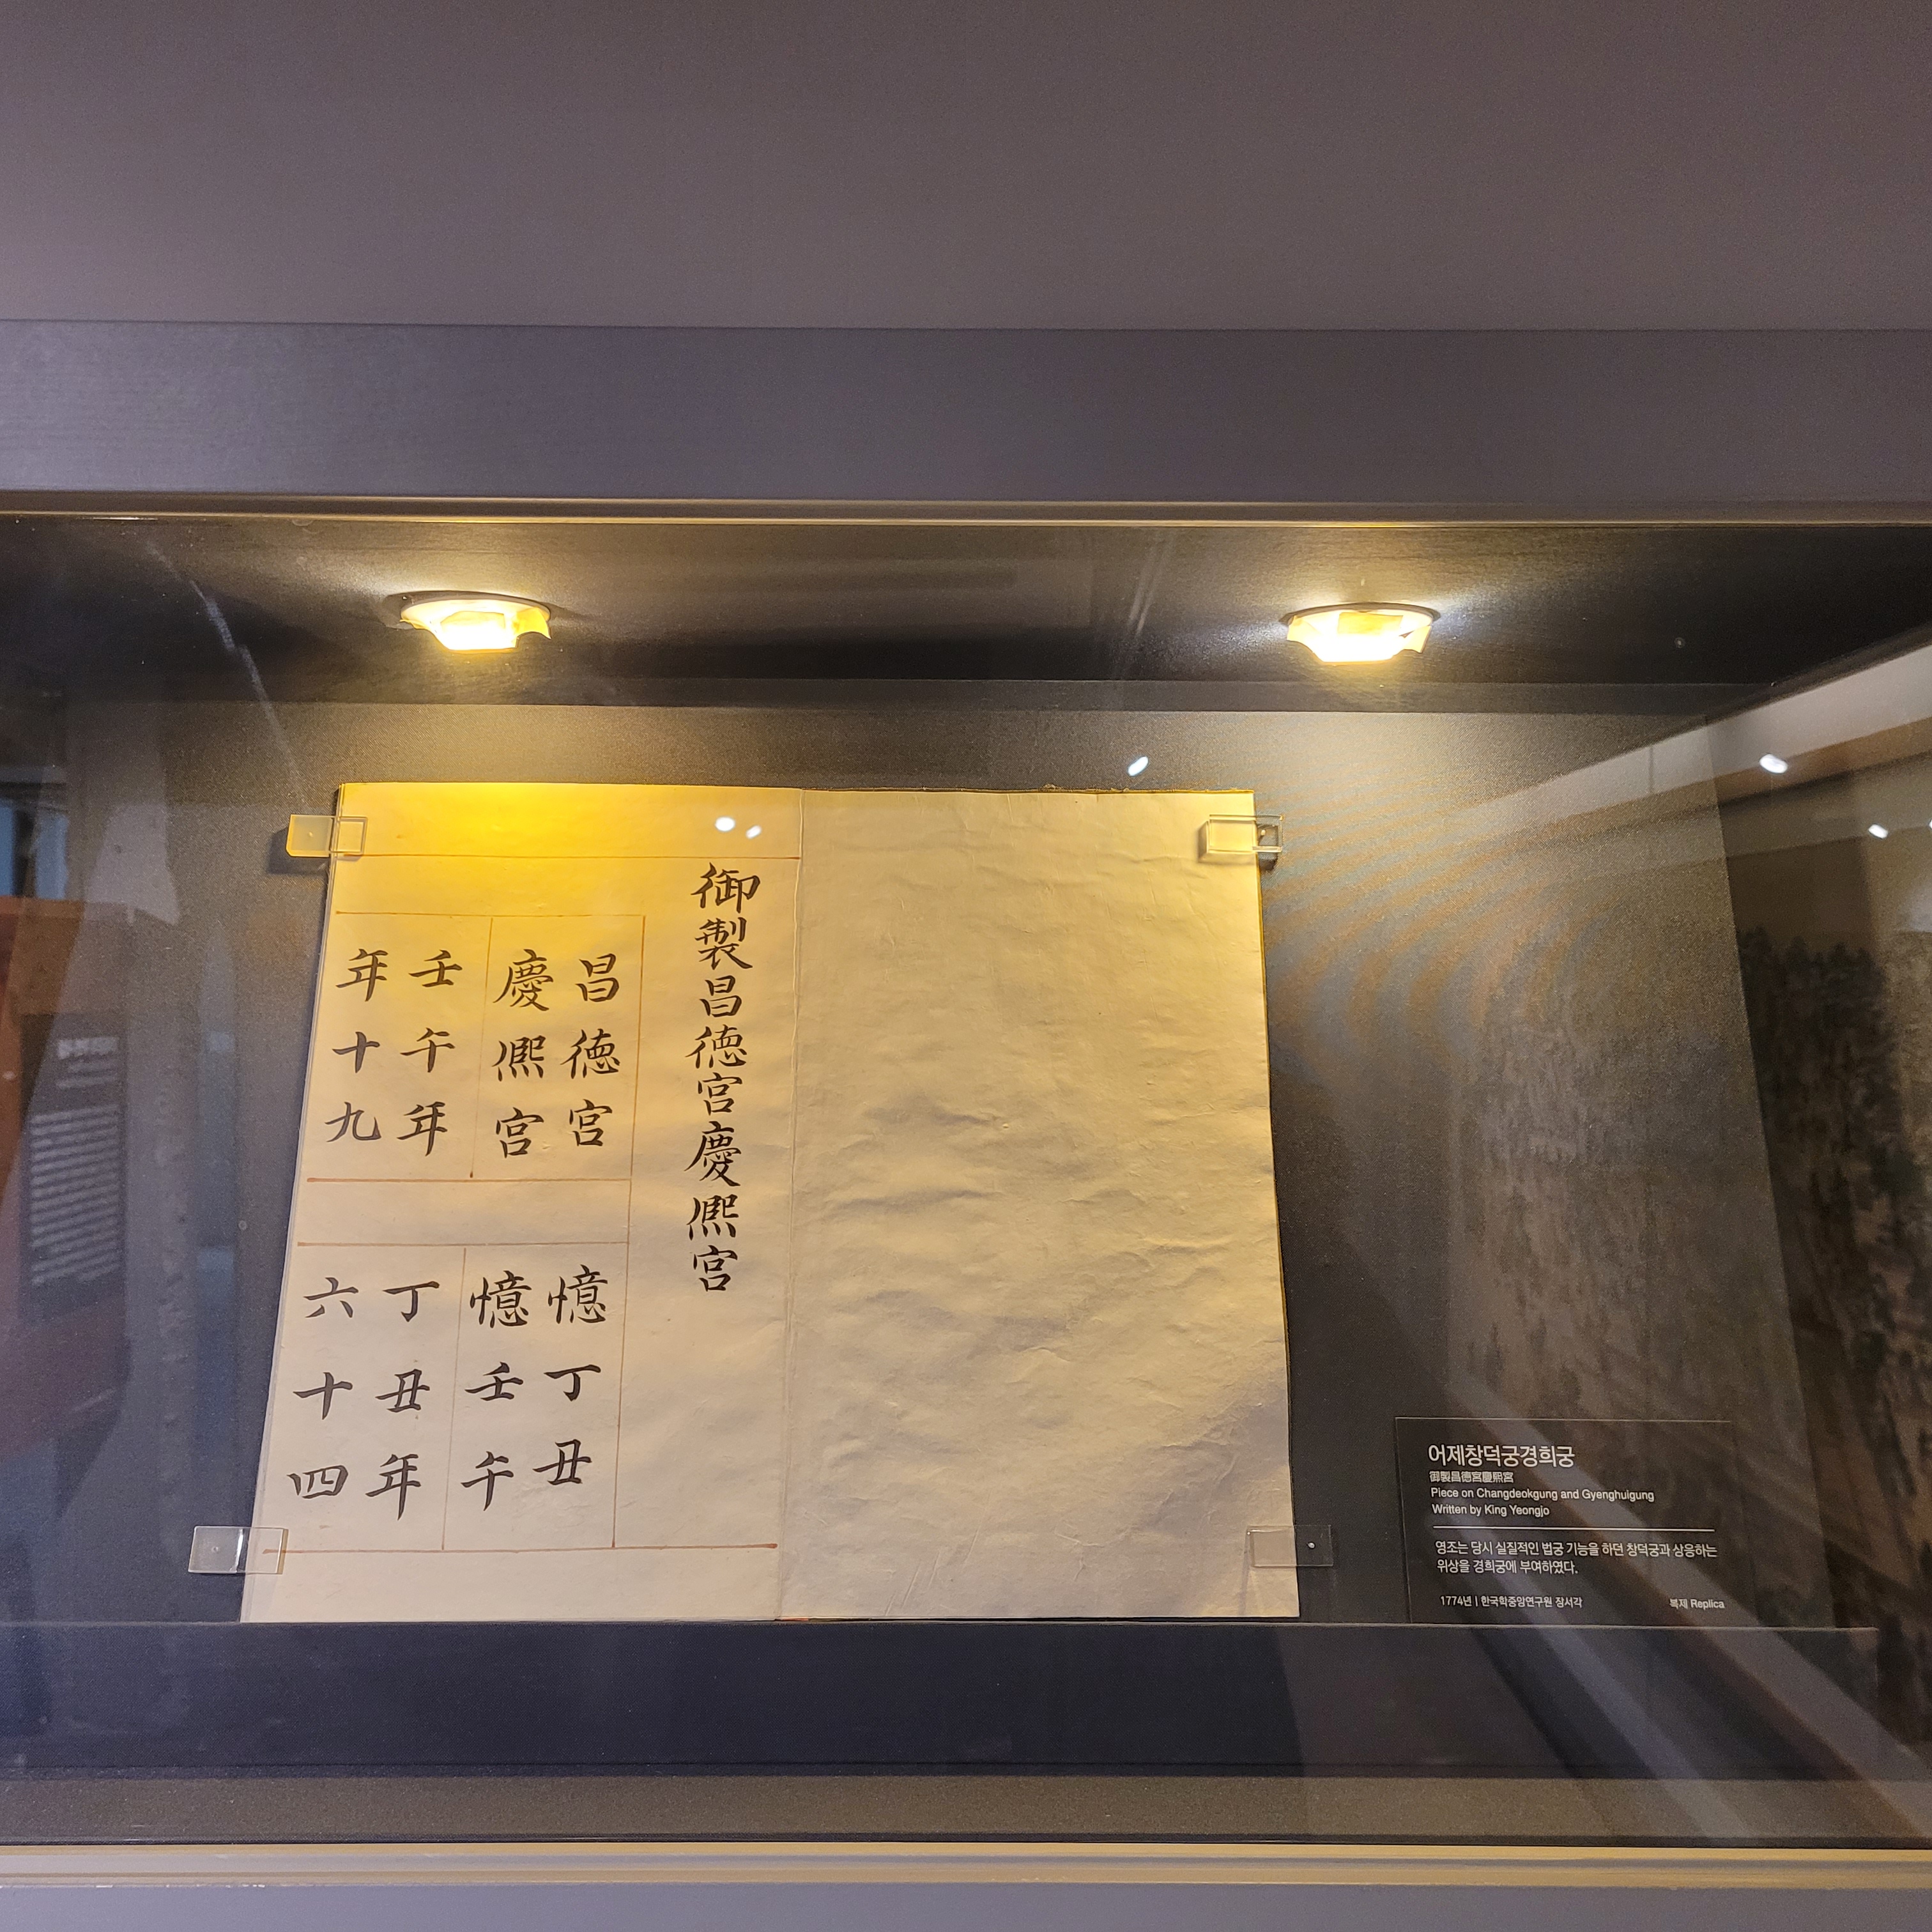 御製昌徳宮慶熙宮
昌徳宮
慶熙宮
憶丁丑
憶壬午
壬午年
年十九
丁丑年
六十四
어제창덕궁경희궁
御製昌徳宮慶熙宮
Piece on Changdeokgung and Gyenghuigung
Written by King Yeongjo
영조는 당시 실질적인 법궁 기능을 하던 창덕궁과 상응하는
위상을 경희궁에 부여하였다.
1774년 | 한국학중앙연구원 장서각
복제 Replica